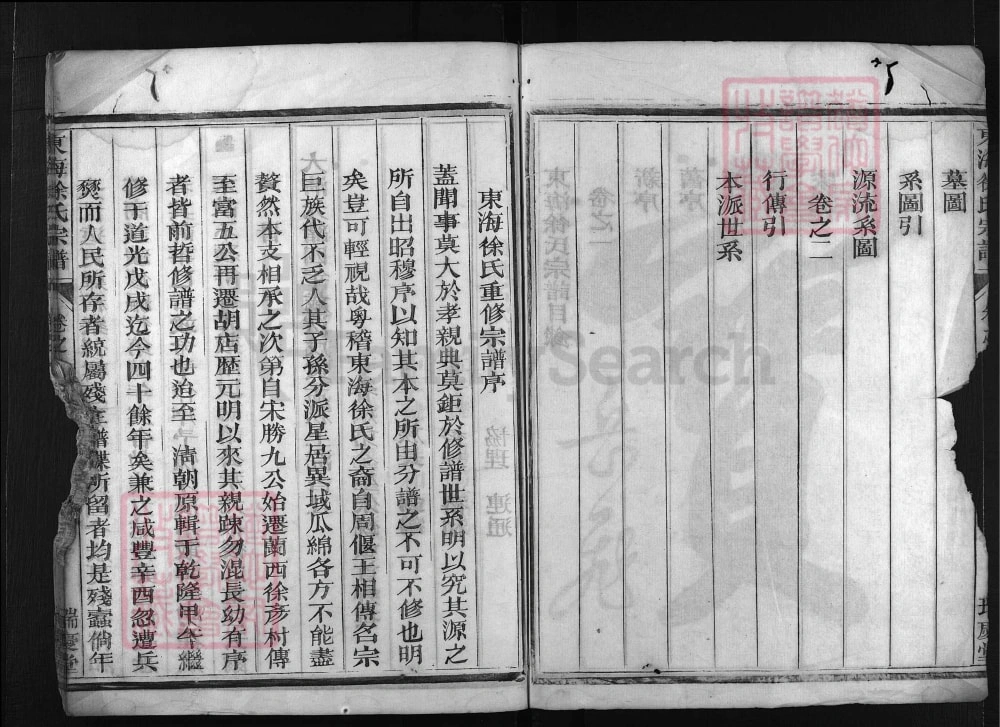 墓圖
系圖引
源流系圖
卷之二
行傳引
本派世系
東海徐氏重修宗譜序
蓋聞事莫大於孝親典莫鉅於修譜世系明以究其源之
所自出昭穆序以知其本之所由分譜之不可不修也明
矣豈可輕視哉粵稽東海徐氏之裔自周偃王相傳名宗
大巨族代不乏人其子孫分派星居異域瓜綿各方不能盡
贅然本支相承之次第自宋勝九公始遷蘭西徐彥村傳
至富五公再遷胡店歷元明以來其親踈勿混長幼有序
者皆前哲修譜之功也迨至
清朝原輯于乾隆甲午繼
修于道光戊戌迄今四十餘年矣兼之咸豐辛酉忽遭兵
燹而人民所存者統屬殘譜牒所留者均是殘蠹倘年
東海徐氏宗譜
卷之
瑞慶堂